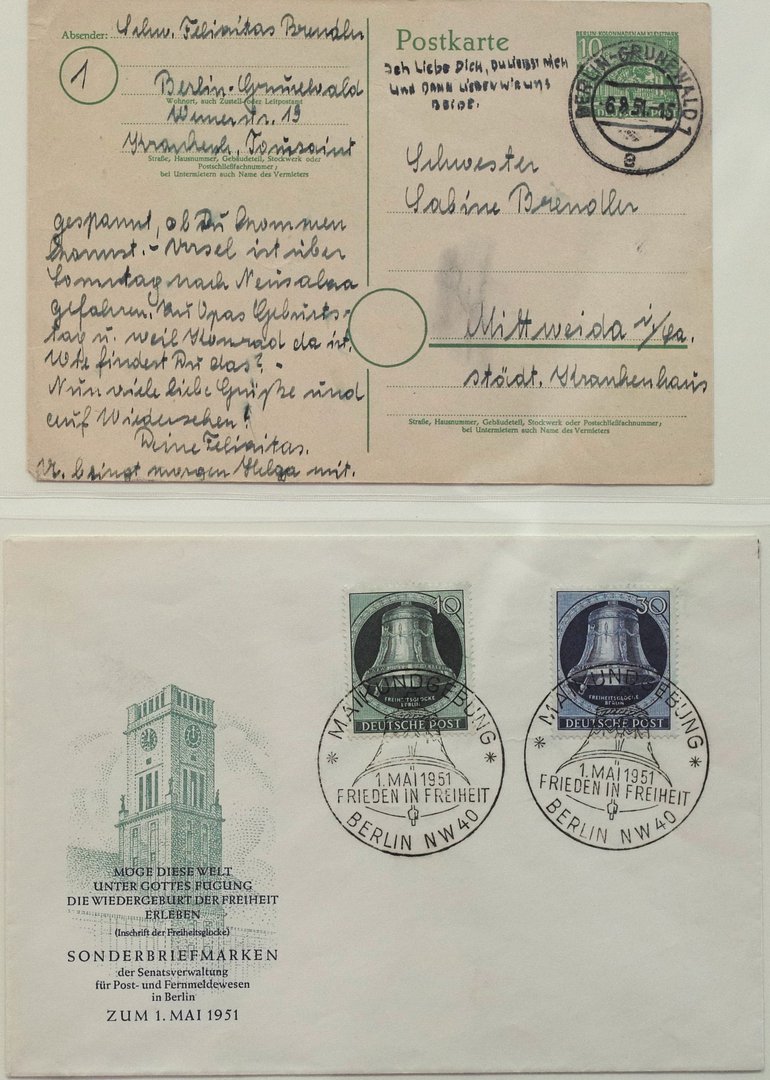 Absender: Schw. Felicitas Brendler
1
Berlin-Grunewald
Wohnort, auch Zustell- oder Leitpostamt
Str. 13
Krankenh. Toussaint
Straße, Hausnummer, Gebäudeteil, Stockwerk oder
Postschließfachnummer;
bei Untermietern auch Name des Vermieters
gespannt, ob Du kommen
kannst. – Ursel ist über
Sonntag nach Neusalza
gefahren. Zu Opas Geburts-
tag u. weil Konrad da ist.
Wie findest Du das? –
Nun viele liebe Grüße und
auf Wiedersehen!
Deine Felicitas.
bringt morgen Helga mit.
Postkarte
BERLIN-KOLONNADEN AM KLEISTPARK
10
BERLIN-GRUNEWALD 1
-6.8.51.-15
e
Ich liebe Dich, Du liebst mich
und dann lieben wir uns
beide.
Schwester
Sabine Brendler
Mittweida i/Sa.
städt. Krankenhaus
Straße, Hausnummer, Gebäudeteil, Stockwerk oder Postschließfachnummer;
bei Untermietern auch Name des Vermieters
10
FREIHEITSGLOCKE
BERLIN
DEUTSCHE POST
30
FREIHEITSGLOCKE
BERLIN
DEUTSCHE POST
* MAIKUNDGEBUNG *
1. MAI 1951
FRIEDEN IN FREIHEIT
BERLIN NW 40
* MAIKUNDGEBUNG *
1. MAI 1951
FRIEDEN IN FREIHEIT
BERLIN NW 40
MÖGE DIESE WELT
UNTER GOTTES FÜGUNG
DIE WIEDERGEBURT DER FREIHEIT
ERLEBEN
(Inschrift der Freiheitsglocke)
SONDERBRIEFMARKEN
der Senatsverwaltung
für Post- und Fernmeldewesen
in Berlin
ZUM 1. MAI 1951